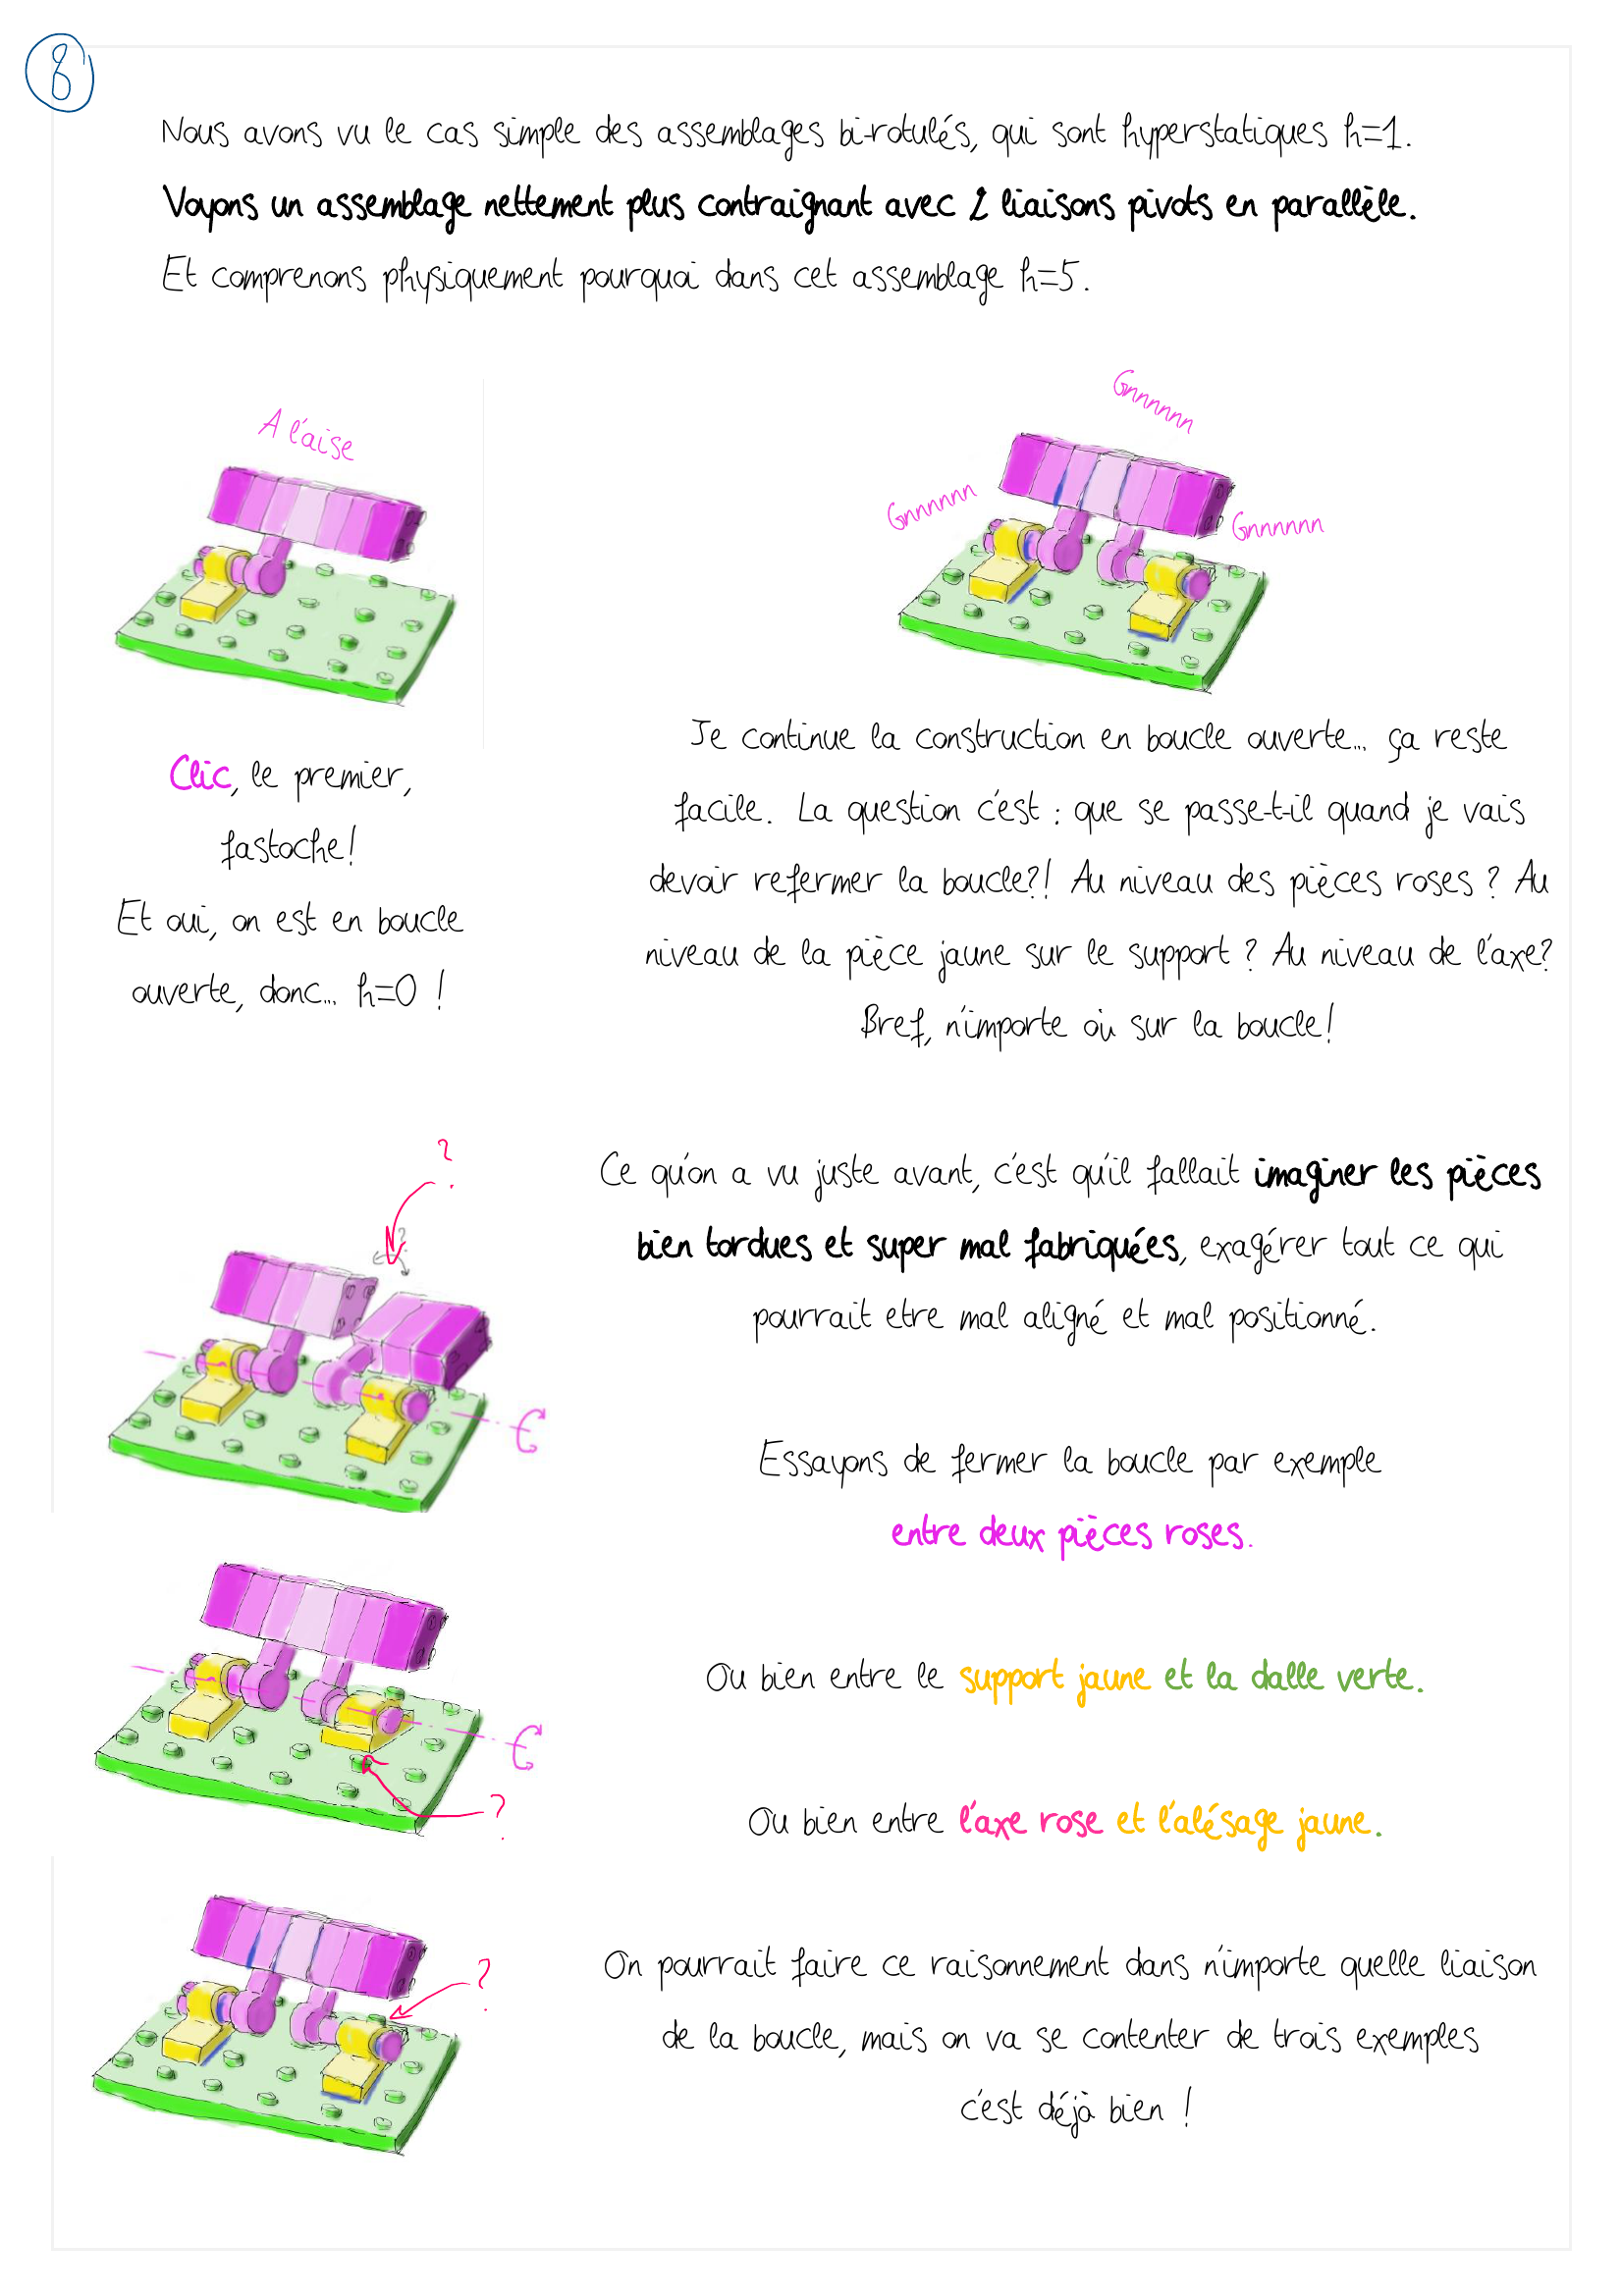 8
Nous avons vu le cas simple des assemblages bi-rotulés, qui sont hyperstatiques h=1.
Voyons un assemblage nettement plus contraignant avec 2 liaisons pivots en parallèle.
Et comprenons physiquement pourquoi dans cet assemblage h=5.
A l'aise
Gnnnnnn
Gnnnnnn
Gnnnnnn
Clic, le premier,
fastoche!
Et oui, on est en boucle
ouverte, donc... h=0 !
Je continue la construction en boucle ouverte... ça reste
facile. La question c'est : que se passe-t-il quand je vais
devoir refermer la boucle?! Au niveau des pièces roses ? Au
niveau de la pièce jaune sur le support ? Au niveau de l'axe?
Bref, n'importe où sur la boucle!
?
?
Ce qu'on a vu juste avant, c'est qu'il fallait imaginer les pièces
bien tordues et super mal fabriquées, exagérer tout ce qui
pourrait etre mal aligné et mal positionné.
Essayons de fermer la boucle par exemple
entre deux pièces roses.
Ou bien entre le support jaune et la dalle verte.
?
Ou bien entre l'axe rose et l'alésage jaune.
?
On pourrait faire ce raisonnement dans n'importe quelle liaison
de la boucle, mais on va se contenter de trois exemples
c'est déjà bien !